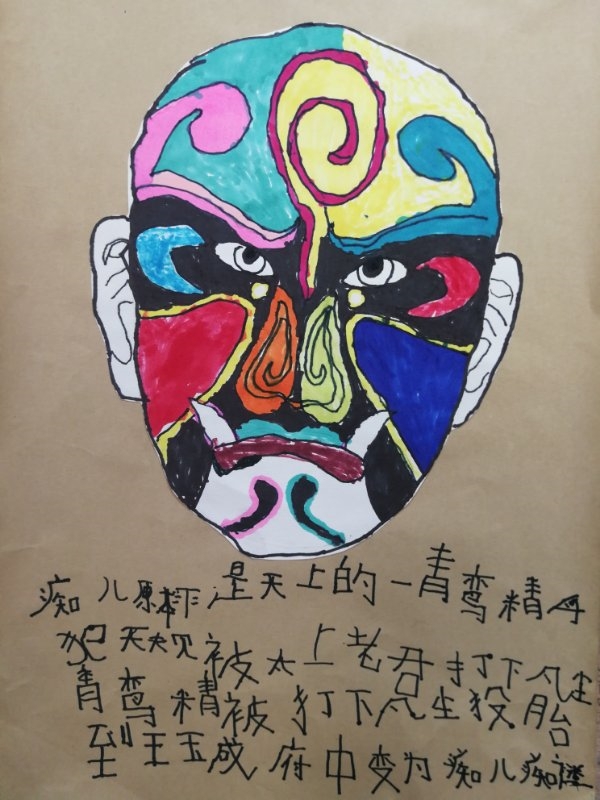 痴儿原本是天上的一青鸾精
犯天规被太上老君打下凡尘
青鸾精被打下凡生投胎
到王玉成府中变为痴儿痴